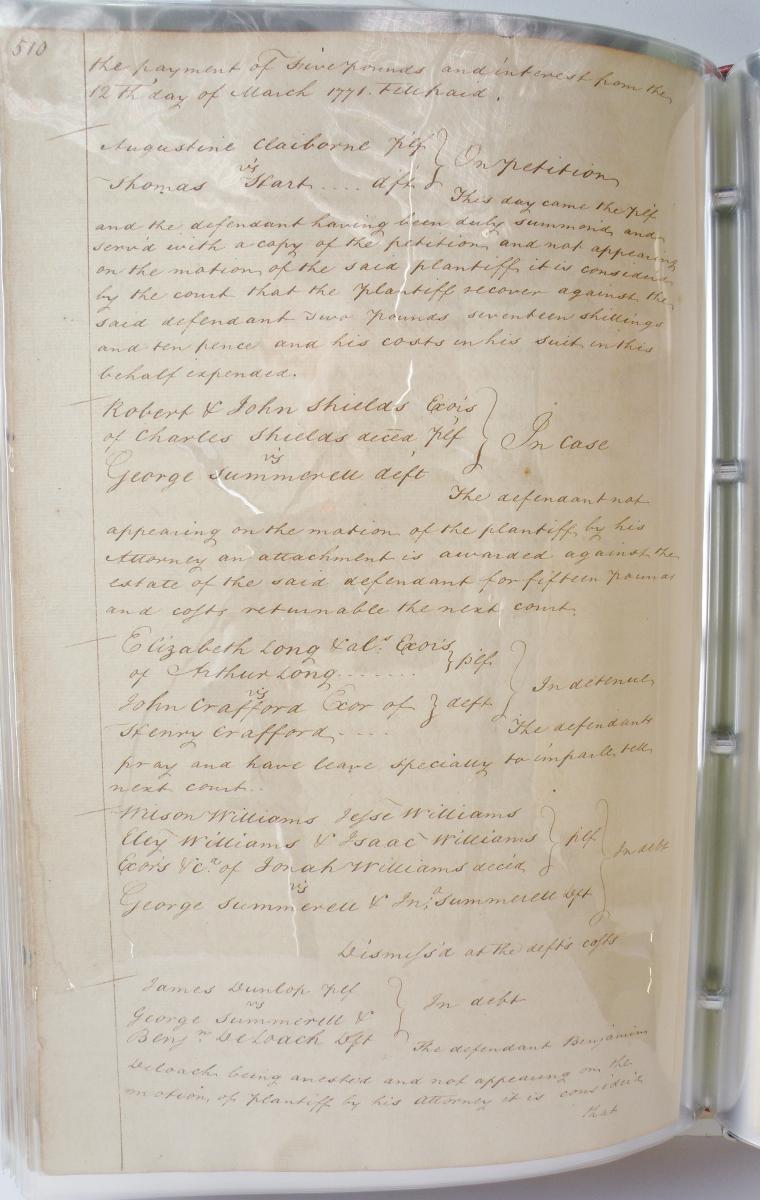 510
the payment of Five pounds and interest from the
12th day of March 1771. till paid.
Augustine Claiborne Plf
vs
Thomas Hart .... dft
On petition
This day came the Plf
and the defendant having been duly summond and
serv'd with a copy of the petition and not appearing
on the motion of the said plantiff it is considerd
by the court that the Plantiff recover against the
said defendant Two Pounds seventeen shillings
and ten pence and his costs in his suit in this
behalf expended.
Robert & John Shields Exors
of Charles Shields deced Plf
vs
George Summerell deft
In Case
The defendant not
appearing on the motion of the plantiff by his
Attorney an attachment is awarded against the
estate of the said defendant for fifteen Pounds
and costs returnable the next court.
Elizabeth Long & als. Exors
of Arthur Long .......
plf
vs
John Crafford Exor of
Henry Crafford ....
deft
In detenue
The defendants
pray and have leave specially to imparle till
next court..
Wilson Williams Jesse Williams
Eley Williams & Isaac Williams
Exors &c. of Jonah Williams decd
plf
vs
George Summerell & Jno. Summerell Dft
In debt
Dismiss'd at the defts costs
James Dunlop Plf
vs
George Summerell &
Benjn. DeLoach Dft
In debt
The defendant Benjamin
Deloach being arrested and not appearing on the
motion of plantiff by his attorney it is considerd
that